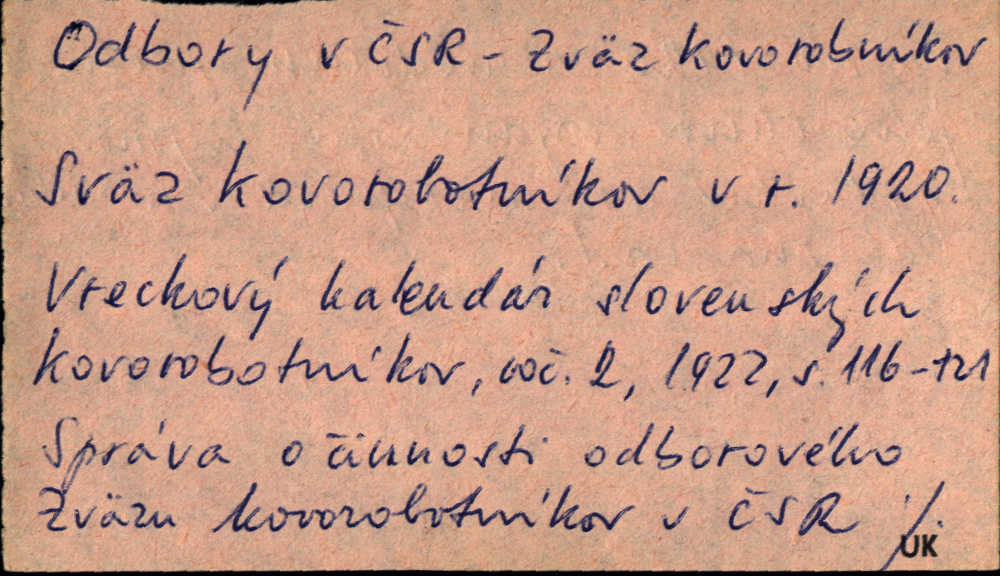 Odbory v ČSR - Zväz kovorobníkov
Sväz kovorobotníkov v r. 1920.
Vreckový kalendár slovenských
kovorobotníkov, roč. 2, 1922, s. 116-121
Správa o činnosti odborového
Zväzu kovorobotníkov v ČSR ./.
UK